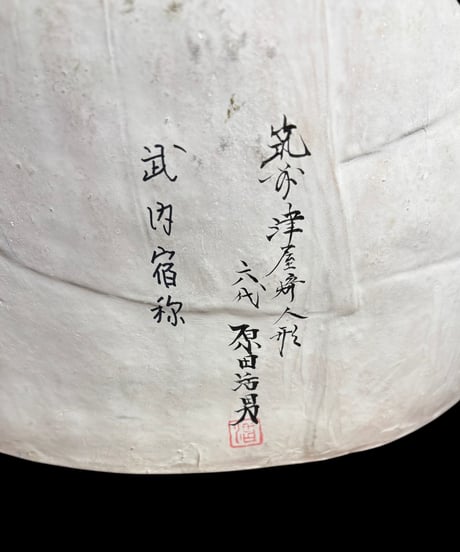 筑前津屋崎人形
六代
原田活男
武内宿称
活